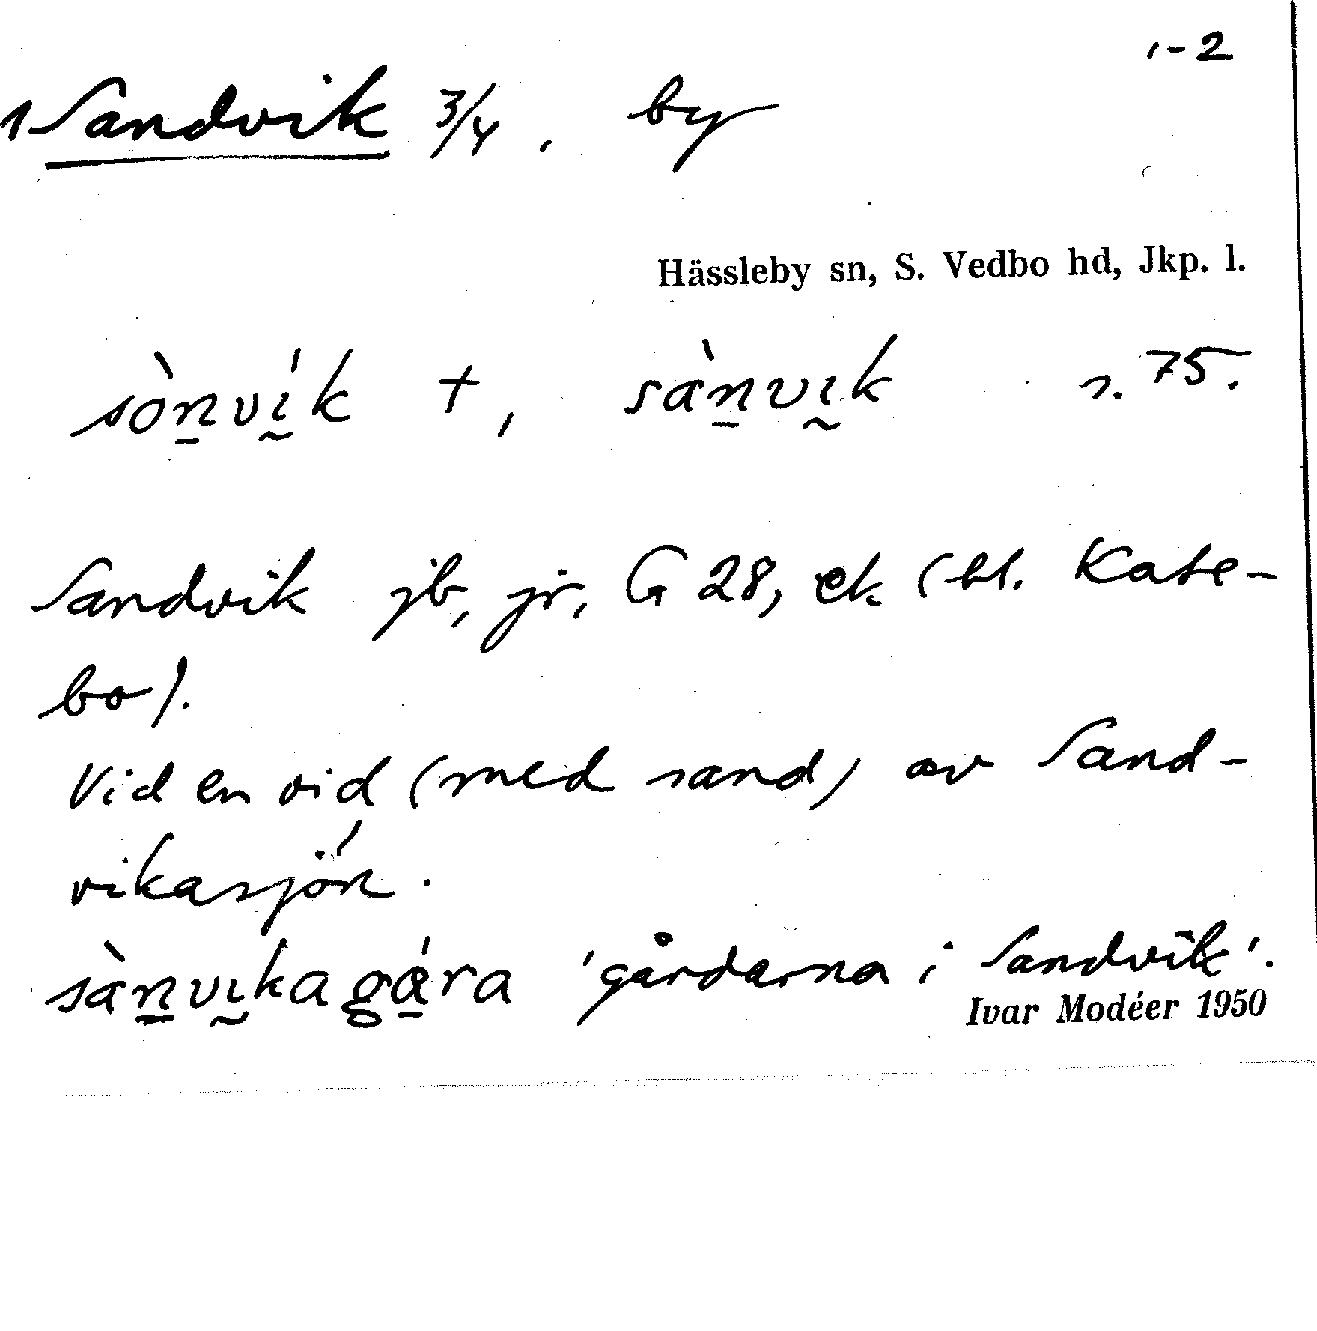 1-2
1 Sandvik 3/4. by
Hässleby sn, S. Vedbo hd, Jkp. l.
sòn̲vı̰́k +, sàn̲vı̰k s. 75.
Sandvik jb, jr, G 28, ek (bl. Kate-
bo).
Vid en vid (med sand) av Sand-
vikasjön.
sàn̲vı̰kagá̲ra 'gårdarna i Sandvik'.
Ivar Modéer 1950